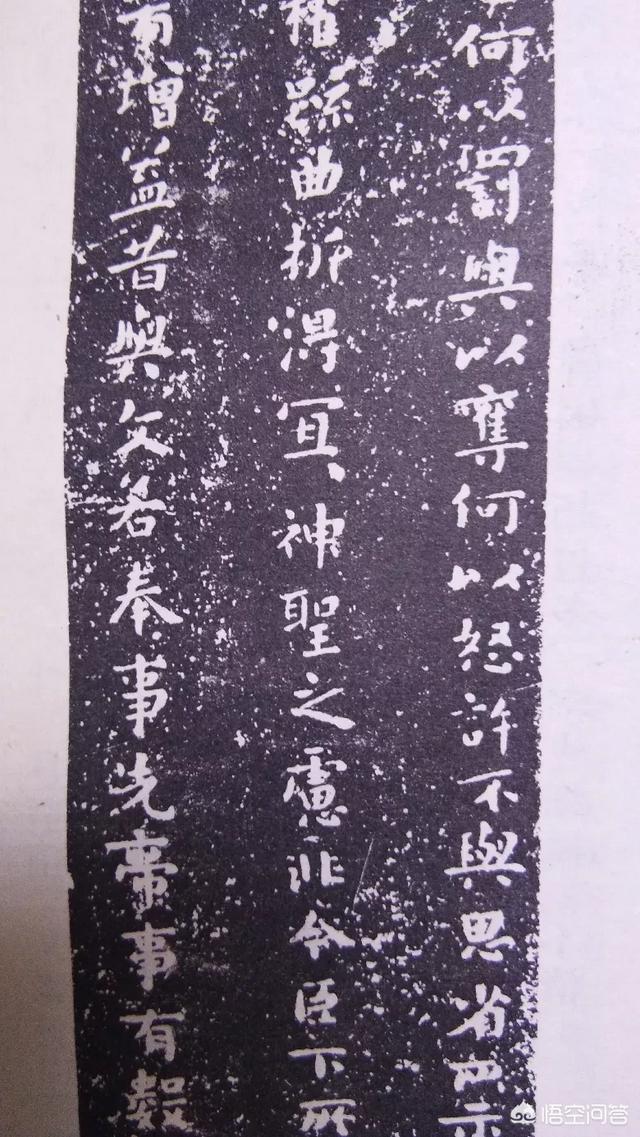 何以罰與以奪何以怒許不與思省所示
權疏曲折得宜神聖之慮非今臣下所
有增益昔與文若奉事先帝事有數
悟空问答